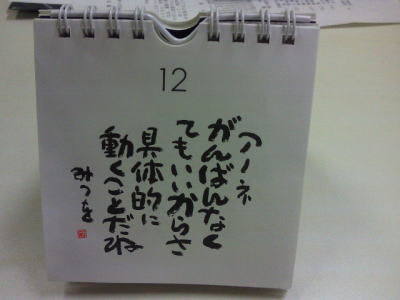 12
アノネ
がんばんなく
てもいいからさ
具体的に
動くことだね
みつを